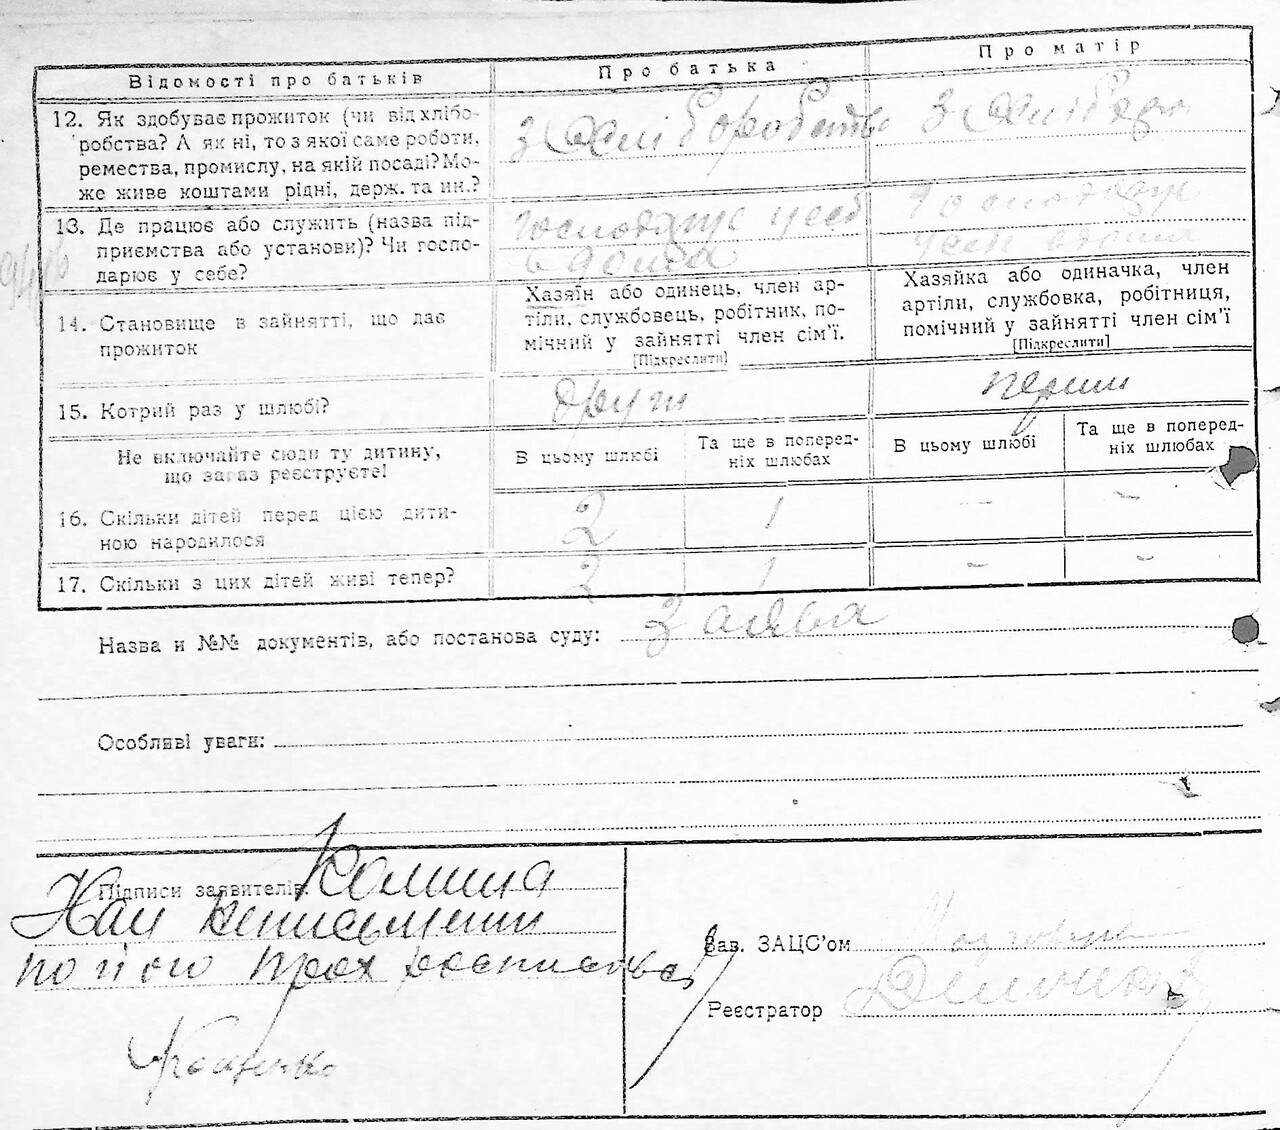 Відомості про батьків
Про батька
Про матір
12. Як здобуває прожиток (чи від хлібо-
робства? А як ні, то з якої саме роботи,
ремества, промислу, на якій посаді? Мо-
же живе коштами рідні, держ. та ин.?
З хліборобства
З хлібороб
13. Де працює або служить (назва під-
приємства або установи)? Чи госпо-
дарює у себе?
господарує у себе
вдома
господарує
у себе вдома
14. Становище в зайнятті, що дає
прожиток
Хазяїн або одинець, член ар-
тіли, службовець, робітник, по-
мічний у зайнятті член сім'ї.
[Підкреслити]
Хазяйка або одиначка, член
артіли, службовка, робітниця,
помічний у зайнятті член сім'ї
[Підкреслити]
15. Котрий раз у шлюбі?
други
перши
Не включайте сюди ту дитину,
що зараз реєструєте!
В цьому шлюбі
Та ще в поперед-
ніх шлюбах
В цьому шлюбі
Та ще в поперед-
ніх шлюбах
16. Скільки дітей перед цією дити-
ною народилося
2
1
-
-
17. Скільки з цих дітей живі тепер?
2
1
-
-
Назва и №№ документів, або постанова суду: Заява
Особливі уваги:
Підписи заявителів
неписьмени
по його прох росписався
Зав. ЗАЦС'ом
Реєстратор